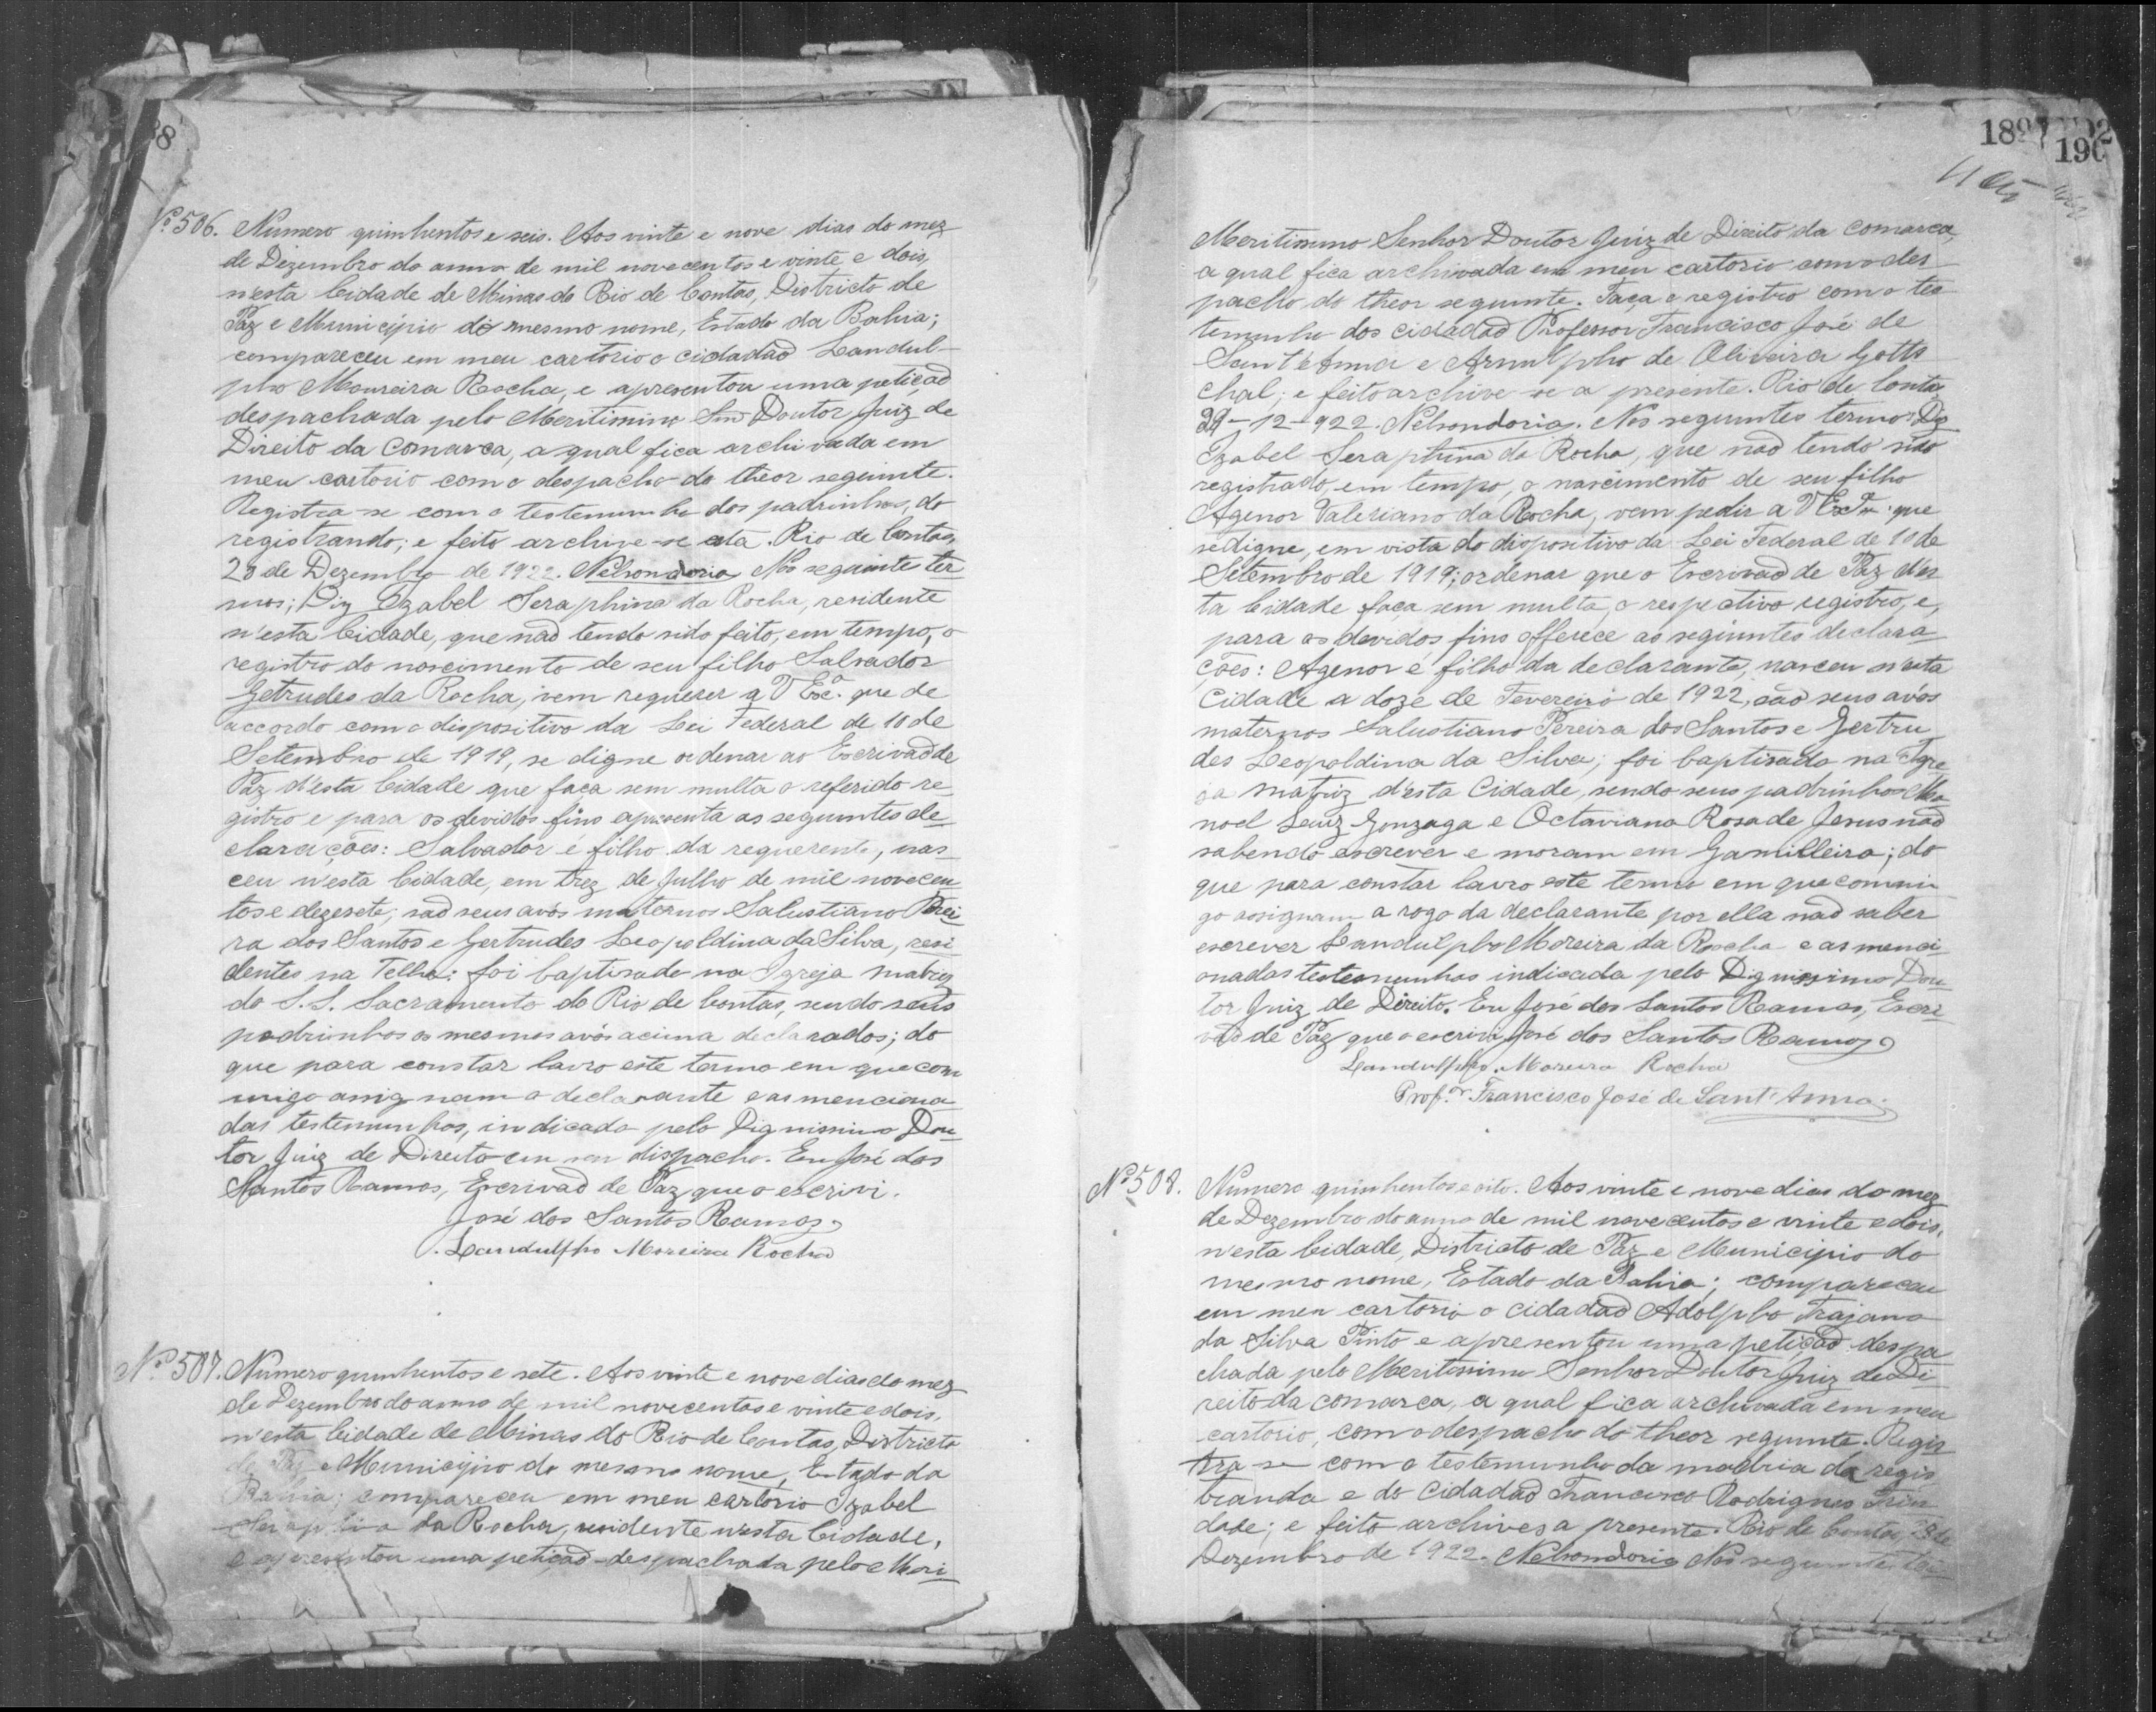 Nº 506. Numero quinhentos e seis. Aos vinte e nove dias do mez
de Dezembro do anno de mil novecentos e vinte e dois,
n'esta Cidade de Minas do Rio de Contas, Districto de
Paz e Municipio do mesmo nome, Estado da Bahia;
compareceu em meu cartorio o cidadaõ Landul-
pho Moureira Rocha, e apresentou uma petiçaõ
despachada pelo Meritissimo Snr Doutor Juiz de
Direito da Comarca, a qual fica archivada em
meu cartorio com o despacho do theor seguinte.
Registra-se com o testemunho dos padrinhos, do
registrando; e feito archive-se esta. Rio de Contas,
28 de Dezembro de 1922. Nelsondoria Nos seguinte ter
mos; Diz Izabel Seraphina da Rocha, residente
n'esta Cidade, que naõ tendo sido feito, em tempo, o
registro do nascimento de seu filho Salvador
Getrudes da Rocha, vem requerer a V Exc.ª que de
accordo com o dispositivo da Lei Federal de 10 de
Setembro de 1919, se digne ordenar ao Escrivaõ de
Paz d'esta Cidade que faça sem multa o referido re
gistro e para os devidos fins apresenta as seguintes de
clarações: Salvador é filho da requerente, nas-
ceu n'esta Cidade, em trez de Julho de mil novecen
tos e dezesete; saõ seus avós maternos Salustiano Perei
ra dos Santos e Gertrudes Leopoldina da Silva, resi
dentes na Telha: foi baptisado na Igreja matriz
do S. S. Sacramento do Rio de Contas, sendo seus
padrinhos os mesmos avós acima declarados; do
que para constar lavro este termo em que com
migo assignam o declarante e as menciona
das testemunhas, indicada pelo Dignissimo Dou
tor Juiz de Direito em seu dispacho. Eu José dos
Santos Ramos, Escrivaõ de Paz que o escrivi.
José dos Santos Ramos
Landulpho Moreira Rocha
Nº 507. Numero quinhentos e sete. Aos vinte e nove dias do mez
de Dezembro do anno de mil novecentos e vinte e dois,
n'esta Cidade de Minas do Rio de Contas, Districto
de Paz e Municipio do mesmo nome, Estado da
Bahia; compareceu em meu cartorio Izabel
Seraphina da Rocha, residente n'esta Cidade,
e apresentou uma petiçaõ despachada pelo Meri
189
190
Meritissimo Senhor Doutor Juiz de Direito da Comarca,
a qual fica archivada em meu cartorio com o des
pacho do theor seguinte. Faça o registro com o tes
temunho dos cidadaõ Professor Francisco José de
Sant'Anna e Arnulpho de Oliveira Gotts
chal; e feito archive-se a presente. Rio de Contas
29-12-922. Nelsondoria. Nos seguintes termos Diz
Izabel Seraphina da Rocha, que naõ tendo sido
registrado, em tempo, o nascimento de seu filho
Agenor Valeriano da Rocha, vem pedir a V Excia. que
se digne, em vista do dispositivo da Lei Federal de 10 de
Setembro de 1919; ordenar que o Escrivaõ de Paz d'es
ta Cidade faça sem multa, o respectivo registro, e,
para os devidos fins offerece as seguintes declara
ções: Agenor é filho da declarante, nasceu n'esta
Cidade a doze de Fevereiro de 1922, saõ seus avós
maternos Salustiano Pereira dos Santos e Gertru
des Leopoldina da Silva; foi baptisado na Igre
ja matriz d'esta Cidade, sendo seus padrinhos Ma
noel Luiz Gonzaga e Octaviana Rosa de Jesus naõ
sabendo escrever e moram em Gamilleira; do
que para constar lavro este termo em que commi
go assignam a rogo da declarante por ella naõ saber
escrever Landulpho Moreira da Rocha e as menci
onadas testemunhas indicada pelo Dignissimo Dou
tor Juiz de Direito. Eu José dos Santos Ramos, Escri
vaõ de Paz que o escrivi José dos Santos Ramos
Landulpho Moreira Rocha
Prof.or Francisco José de Sant'Anna.
Nº 508. Numero quinhentos e oito. Aos vinte e nove dias do mez
de Dezembro do anno de mil novecentos e vinte e dois,
n'esta Cidade, Districto de Paz e Municipio do
mesmo nome, Estado da Bahia; compareceu
em meu cartorio o cidadaõ Adolpho Trajano
da Silva Pinto e apresentou uma petiçaõ despa
chada pelo Meritissimo Senhor Doutor Juiz de Di
reito da comarca, a qual fica archivada em meu
cartorio, com o despacho do theor seguinte. Regis
tra-se com o testemunho da madria da regis
tranda e do Cidadaõ Francisco Rodrigues Trin
dade; e feito archives a presente. Rio de Contas 28 de
Dezembro de 1922. Nelsondoria Nos seguinte ter